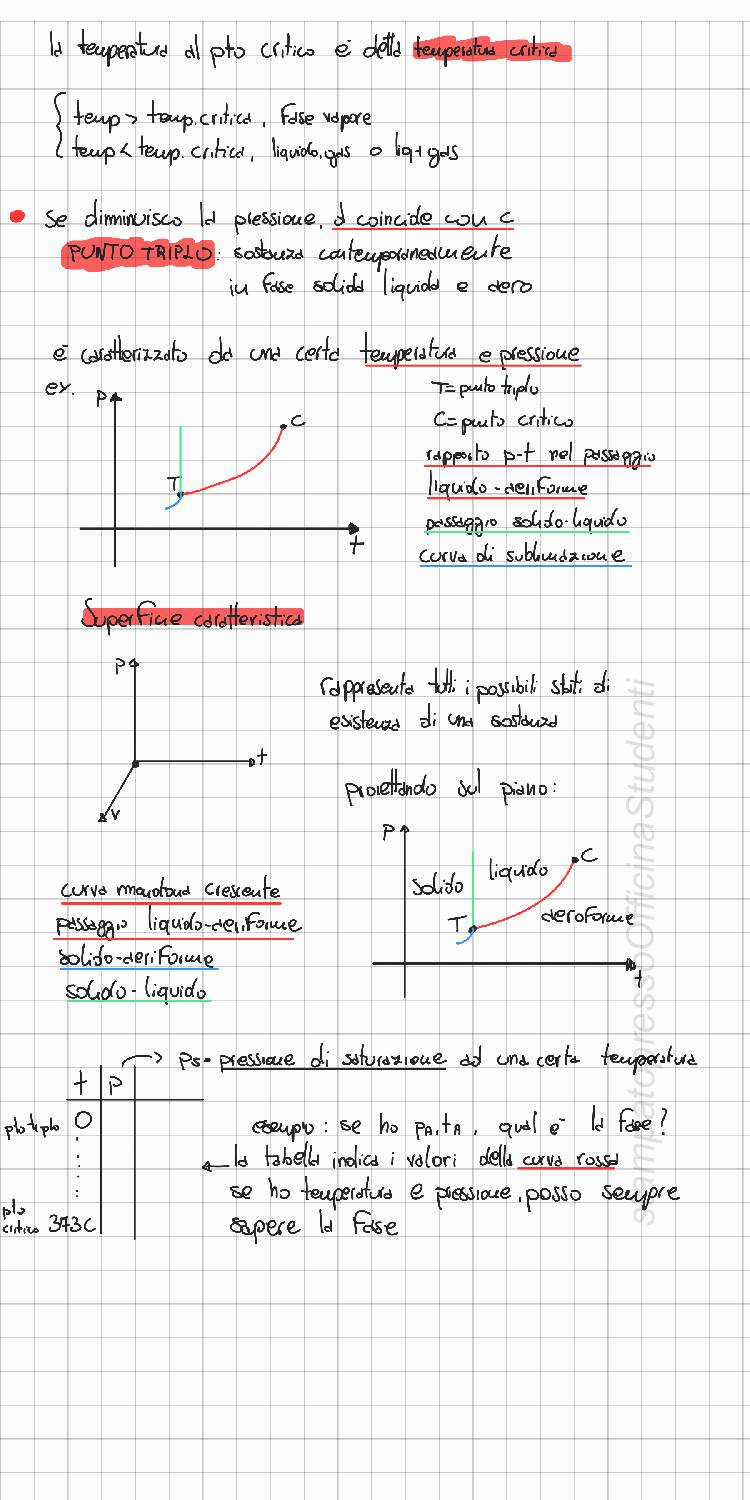 la temperatura al pto critico è detta temperatura critica
temp > temp. critica, fase vapore
temp < temp. critica, liquido, gas o liq+gas
se diminuisco la pressione, d coincide con c
PUNTO TRIPLO: sostanza contemporaneamente
in fase solida liquida e aero
è caratterizzato da una certa temperatura e pressione
ex.
P
C
T
t
T= punto triplo
C= punto critico
rapporto p-t nel passaggio
liquido-aeriforme
passaggio solido-liquido
curva di sublimazione
Superficie caratteristica
P
t
v
rappresenta tutti i possibili stati di
esistenza di una sostanza
proiettando sul piano:
P
C
solido
liquido
T
aeroforme
t
curva monotona crescente
passaggio liquido-aeriforme
solido-aeriforme
solido-liquido
t P
Ps= pressione di saturazione ad una certa temperatura
pto triplo 0
pto
critico 373C
esempio: se ho PA, tA, qual è la fase?
la tabella indica i valori della curva rossa
se ho temperatura e pressione, posso sempre
sapere la fase
stampatopressoOfficinaStudenti